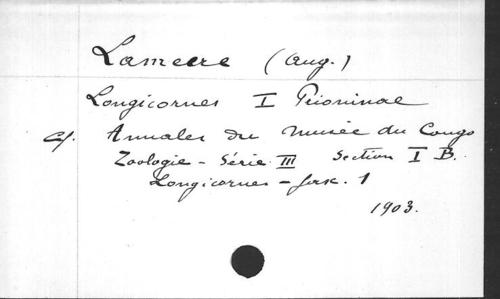 Lameere (Aug.)
Longicornes I Prioninae
Cf. Annales du Musée du Congo
Zoologie - Série III Section I B.
Longicornes - fasc. 1
1903.